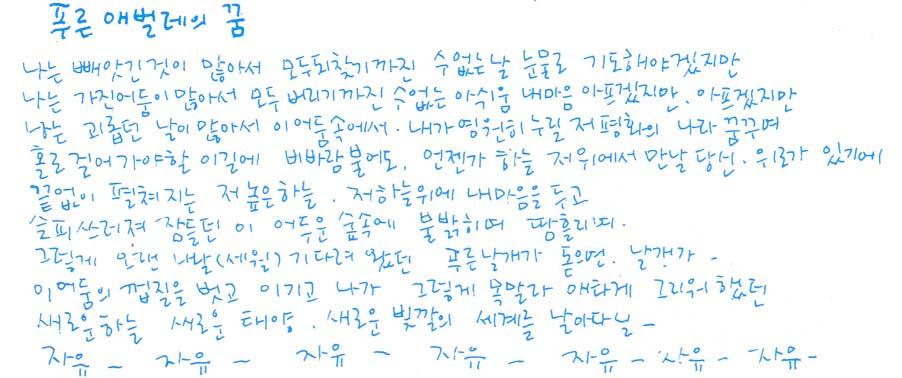 푸른 애벌레의 꿈
나는 빼앗긴것이 많아서 모두되찾기까진 수없는날 눈물로 기도해야겠지만
나는 가진어둠이많아서 모두 버리기까진 수없는 아쉬움 내마음 아프겠지만. 아프겠지만
나는 괴롭던 날이많아서 이어둠속에서. 내가영원히누릴 저평화의 나라 꿈꾸며
홀로걸어가야할 이길에 비바람불어도. 언젠가 하늘 저위에서만날 당신. 위로가 있기에
끝없이 펼쳐지는 저높은하늘. 저하늘위에 내마음을 두고
슬피쓰러져 잠들던 이 어두운 숲속에 불밝히며 땀흘리며.
그렇게 오랜 나날(세월) 기다려 왔던 푸른날개가 돋으면. 날개가 -
이어둠의 껍질을 벗고 이기고 나가 그렇게 목말라 애타게 그리워했던
새로운하늘 새로운 태양. 새로운 빛깔의 세계를 날아다닐 -
자유 - 자유 - 자유 - 자유 - 자유 - 자유 - 자유 -